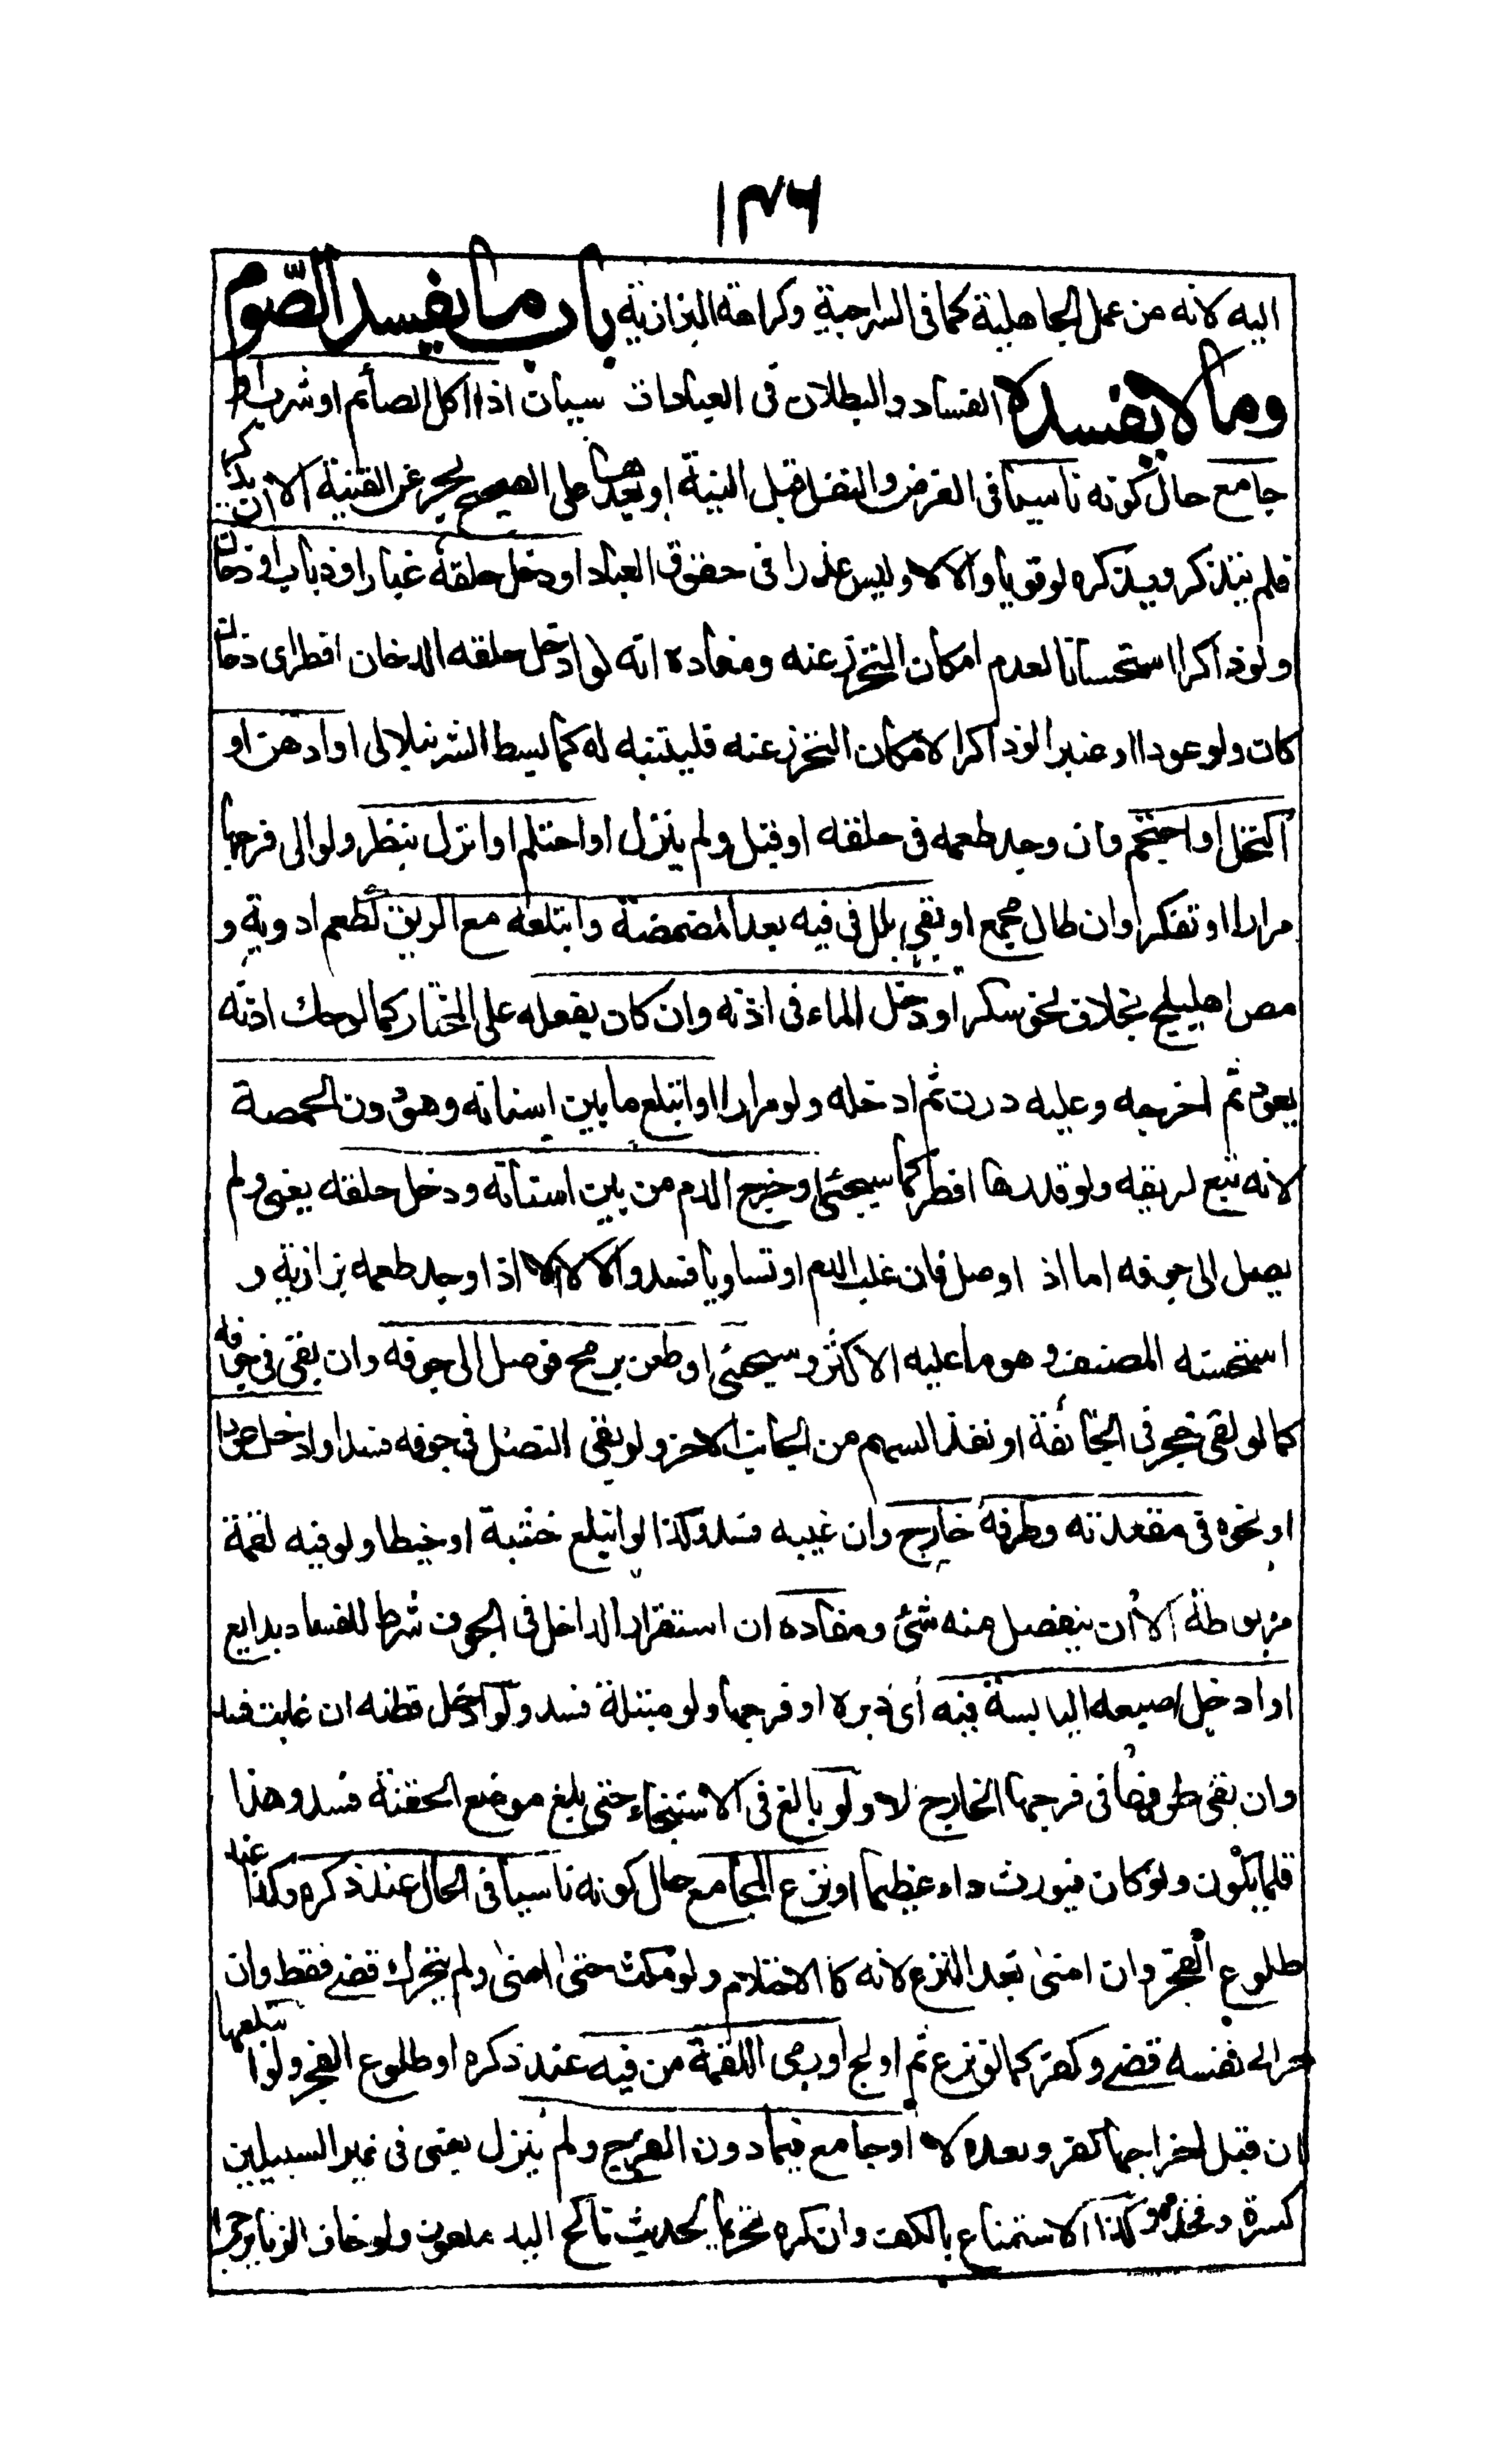 ١٧٦
اليه لانه من عمل الجاهلية كما فى السراجية وكراهة البزازية باب ما يفسد الصّوم
وما لا يفسده الفساد والبطلان فى العبادات سيان اذا اكل الصائم او شرب او
جامع حال كونه ناسيا فى الفرض والنفل قبل النية او بعدها على الصحيح بحر عن القنية الا ان يذكر
فلم يتذكر ويذكره لو قويا والا لا وليس عذرا فى حقوق العباد او دخل حلقه غبار او ذباب او دخان
ولو ذاكرا استحسانا لعدم امكان التحرز عنه ومفاده انه لو ادخل حلقه الدخان افطر اى دخان
كان ولو عودا او عنبرا لو ذاكرا لامكان التحرز عنه فليتنبه له كما بسط الشرنبلالى او ادهن او
اكتحل او احتجم وان وجد طعمه فى حلقه او قبل ولم ينزل او احتلم او انزل بنظر ولو الى فرجها
مرارا او تفكر وان طال مجمع او بقى بلل فى فيه بعد المضمضة وابتلعه مع الريق كطعم ادوية و
مص اهليلج بخلاف نحو سكر او دخل الماء فى اذنه وان كان بفعله على المختار كما لو حك اذنه
بعود ثم اخرجه وعليه درن ثم ادخله ولو مرارا او ابتلع ما بين اسنانه وهو دون الحمصة
لانه تبع لريقه ولو قدرها افطر كما سيجئ او خرج الدم من بين اسنانه ودخل حلقه يعنى ولم
يصل الى جوفه اما اذا وصل فان غلب الدم او تساويا فسد والا لا الا اذا وجد طعمه بزازية و
استحسنه المصنف وهو ما عليه الاكثر وسيجئ او طعن برمح فوصل الى جوفه وان بقى فى جوفه
كما لو لقى حجر فى الجائفة او نفذ السهم من الجانب الاخر ولو بقى النصل فى جوفه فسد او ادخل عودا
او نحوه فى مقعدته وطرفه خارج وان غيبه فسد وكذا لو ابتلع خشبة او خيطا ولو فيه لقمة
مربوطة الا ان ينفصل منه شئ ومفاده ان استقرار الداخل فى الجوف شرط للفساد بدايع
او ادخل اصبعه اليابسة فيه اى دبره او فرجها ولو مبتلة فسد ولو ادخل قطنه ان غابت فسد
وان بقى طرفها فى فرجها الخارج لا ولو بالغ فى الاستنجاء حتى بلغ موضع الحقنة فسد وهذا
قلما يكون ولو كان فيورث داء عظيما او نزع المجامع حال كونه ناسيا فى الحال عند ذكره وكذا عند
طلوع الفجر وان امنى بعد النزع لانه كالاحتلام ولو مكث حتى امنى ولم يتحرك قضى فقط وان
حرك نفسه قضى وكفر كما لو نزع ثم اولج او رمى اللقمة من فيه عند ذكره او طلوع الفجر ولو ابتلعها
ان قبل اخراجها كفر وبعده لا او جامع فيما دون الفرج ولم ينزل يعنى فى غير السبيلين
كسرة وفخذه وكذا الاستمناع بالكف وان كره تحريما لحديث ناكح اليد ملعون ولو خاف الزنا يرجى